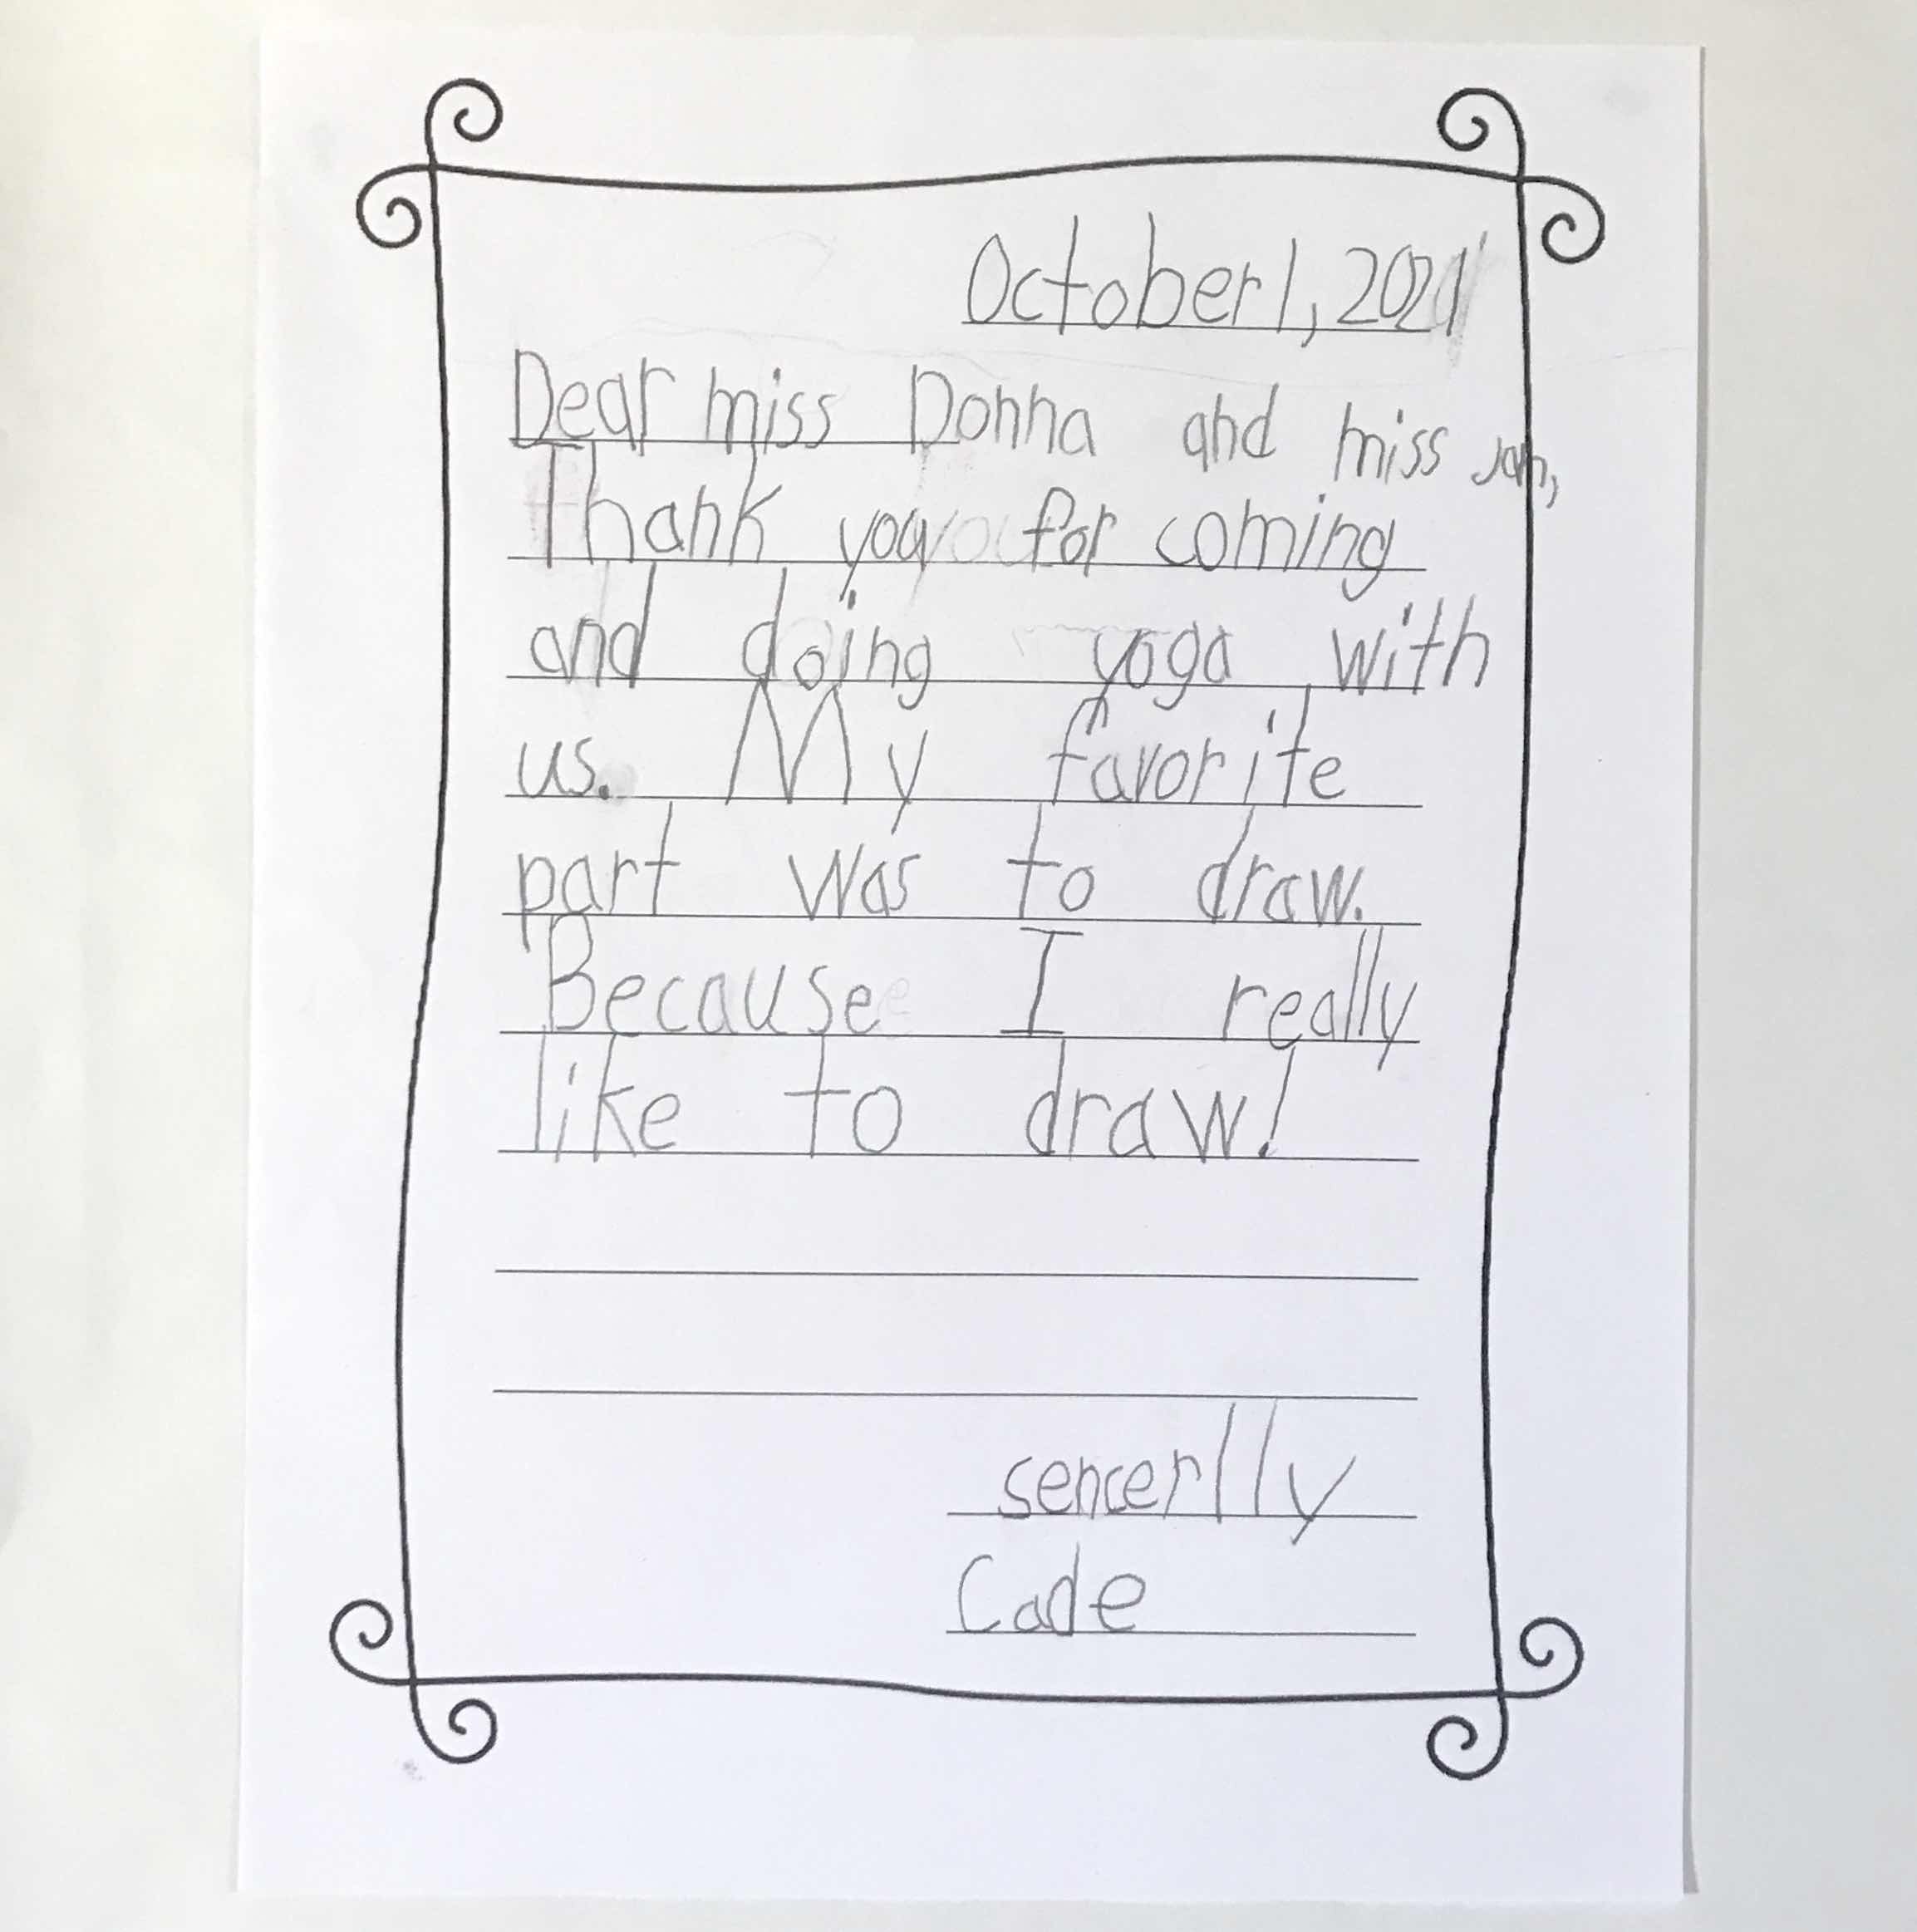 October 1, 2021
Dear miss Donna and miss Jan,
Thank you for coming
and doing yoga with
us. My favorite
part was to draw.
Because I really
like to draw!
sencerlly
Cade